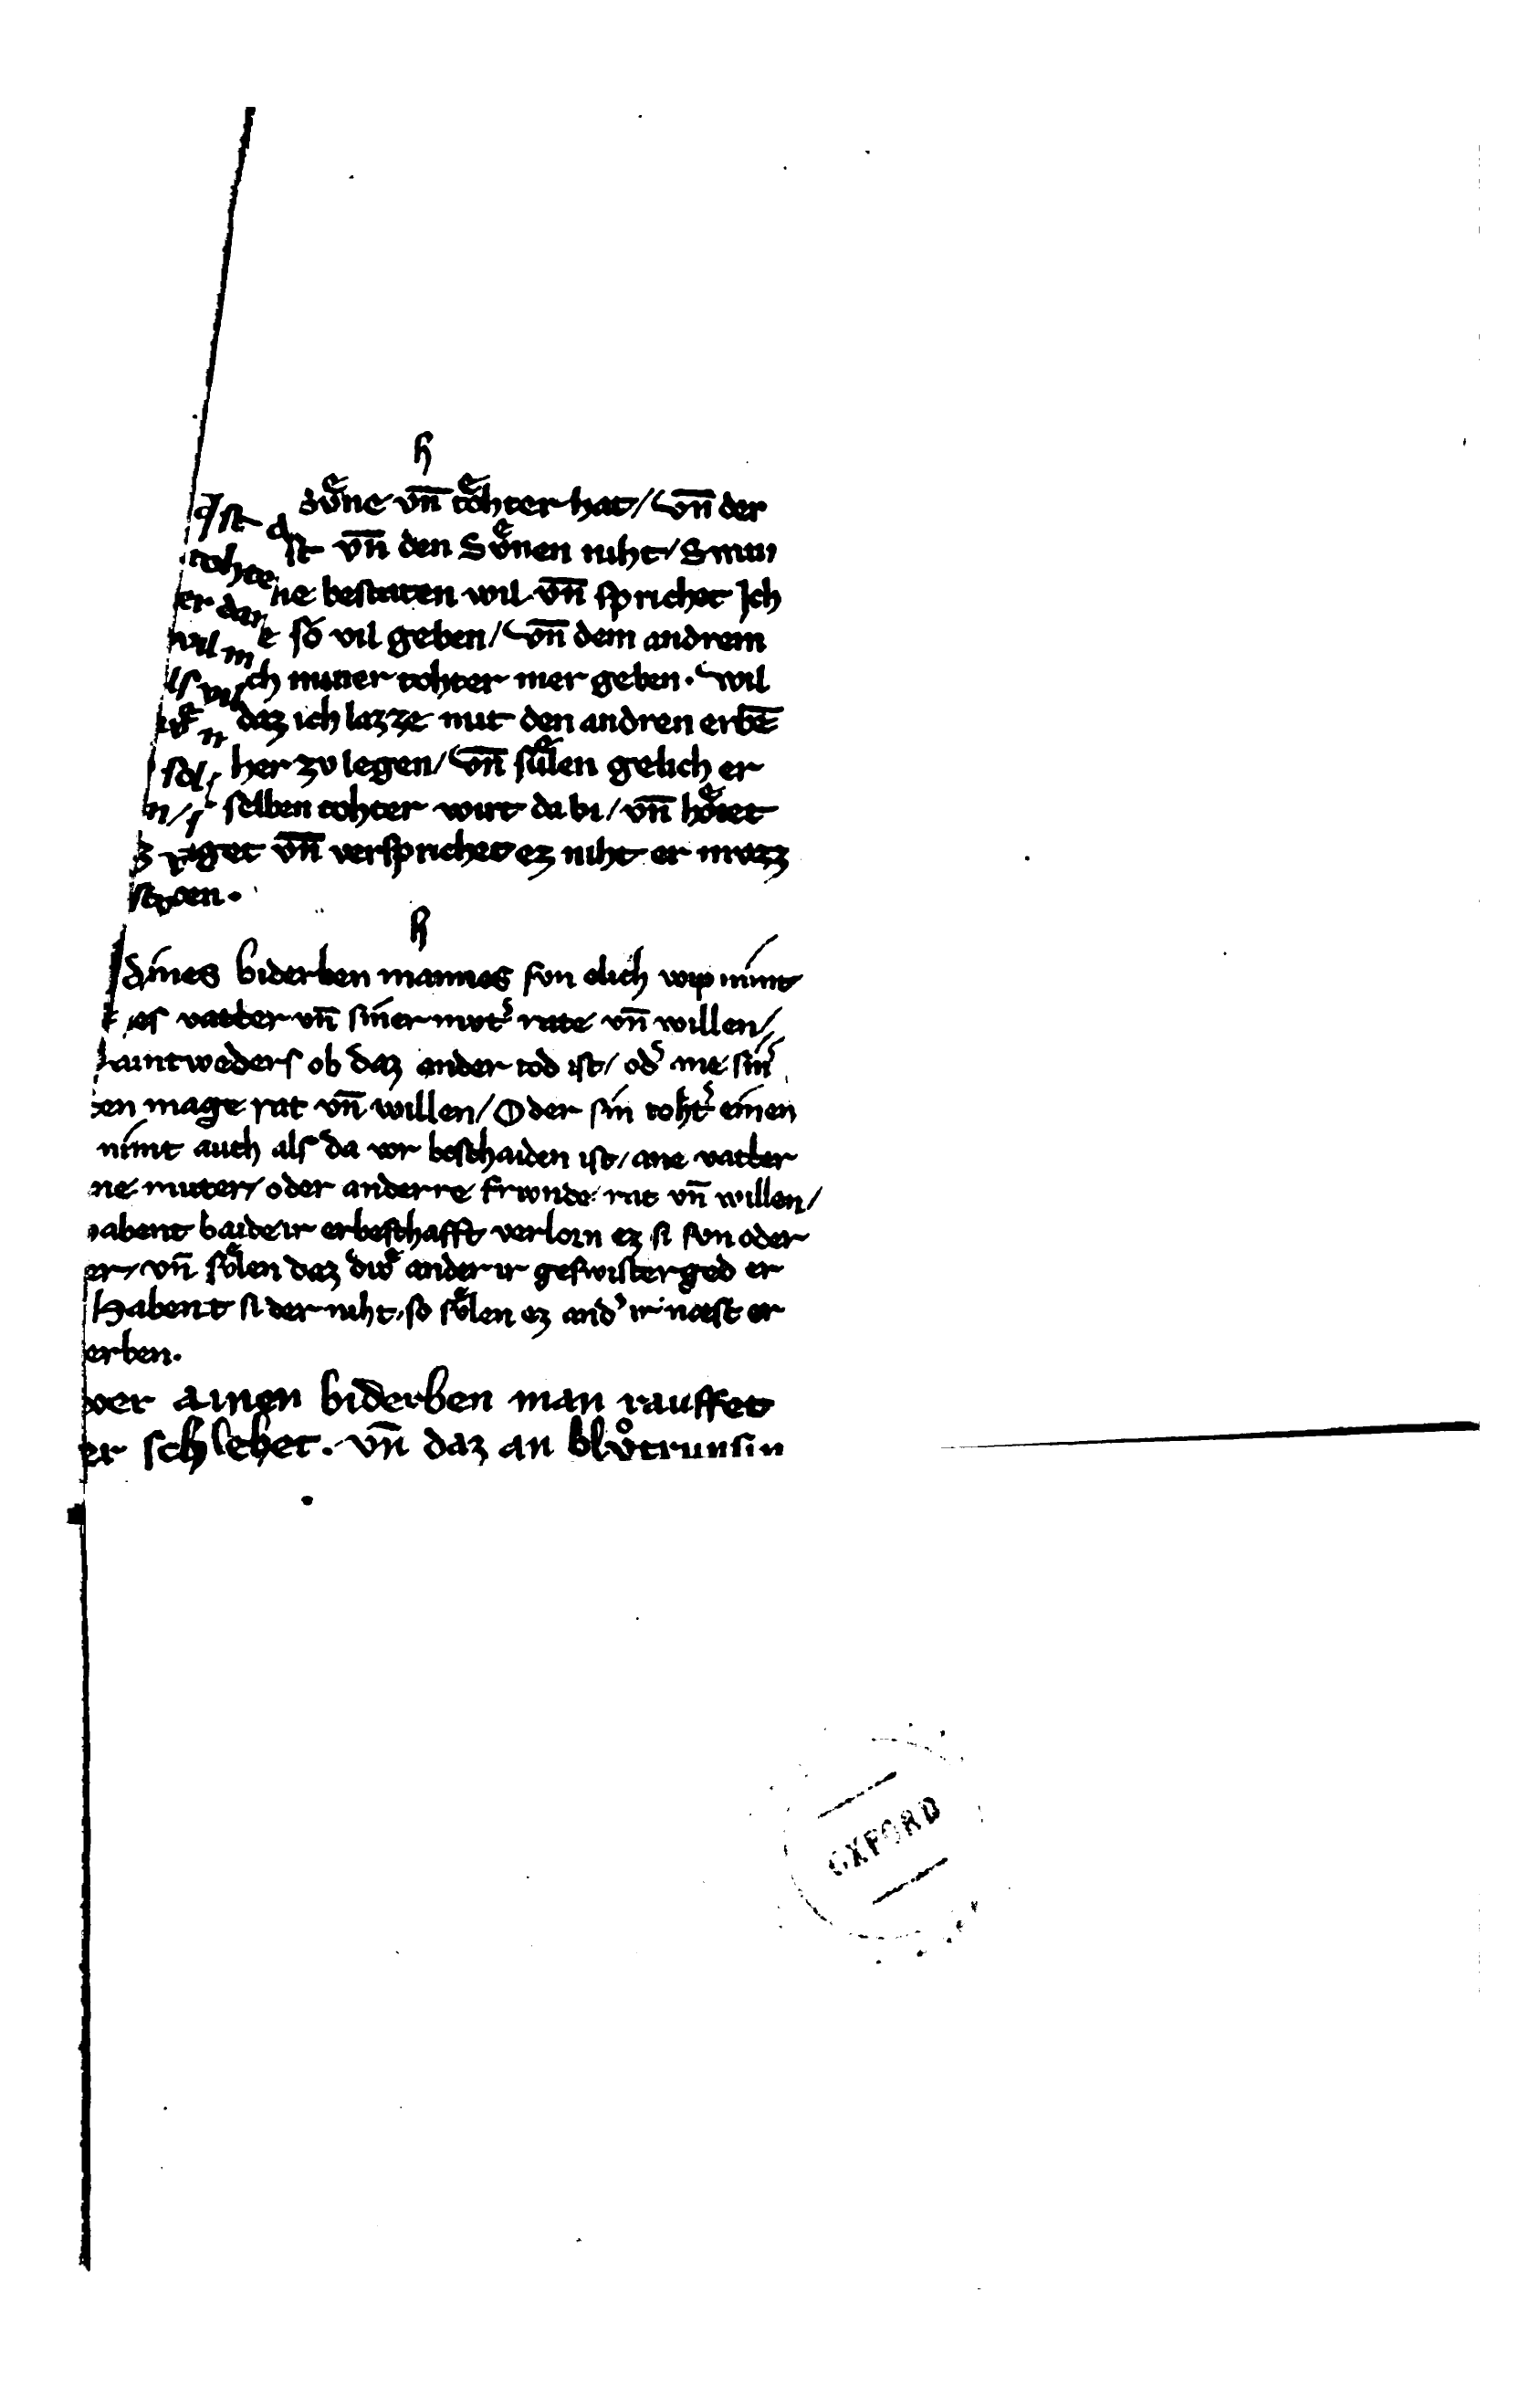 h
Ist d Sv̊ne vn̄ toͤhter hat / Vn̄ der
tohte st vn̄ den Svͤnen niht / Swin
er dar ne bestaten wil. vn̄ sprichet Ich
wil m e so vil geben / Vn̄ dem andrem
ls vil ch miner tohter mer geben. Wil
n daz ich lazze mit den andren erbē
sol her zv legen / Vn̄ suͤlen gelich er
n / selben tohter wirt da bi / vn̄ hoͤret
get vn̄ versprichet ez niht er mvzz
en.
h
Aines biderben mannes svn elich wip nimt
es vatter vn̄ siner mvt' rate vn̄ willen /
aintweders ob daz ander tod ist / od' ane sin'
en mage rat vn̄ willen / Oder sin toht' einen
nimt auch als da vor beschaiden ist / ane vatter
ne muter / oder anderre frwnde rat vn̄ willen /
abent baide ir erbeschafft verlorn ez si svn oder
er / vn̄ svͤlen daz diwͤ ander ir geswisterged er
Habent si der niht, so svͤlen ez and' ir næst er
erben.
wer ainen biderben man rauffet
er schlehet. vn̄ daz an blv̊trunsin
OXFORD